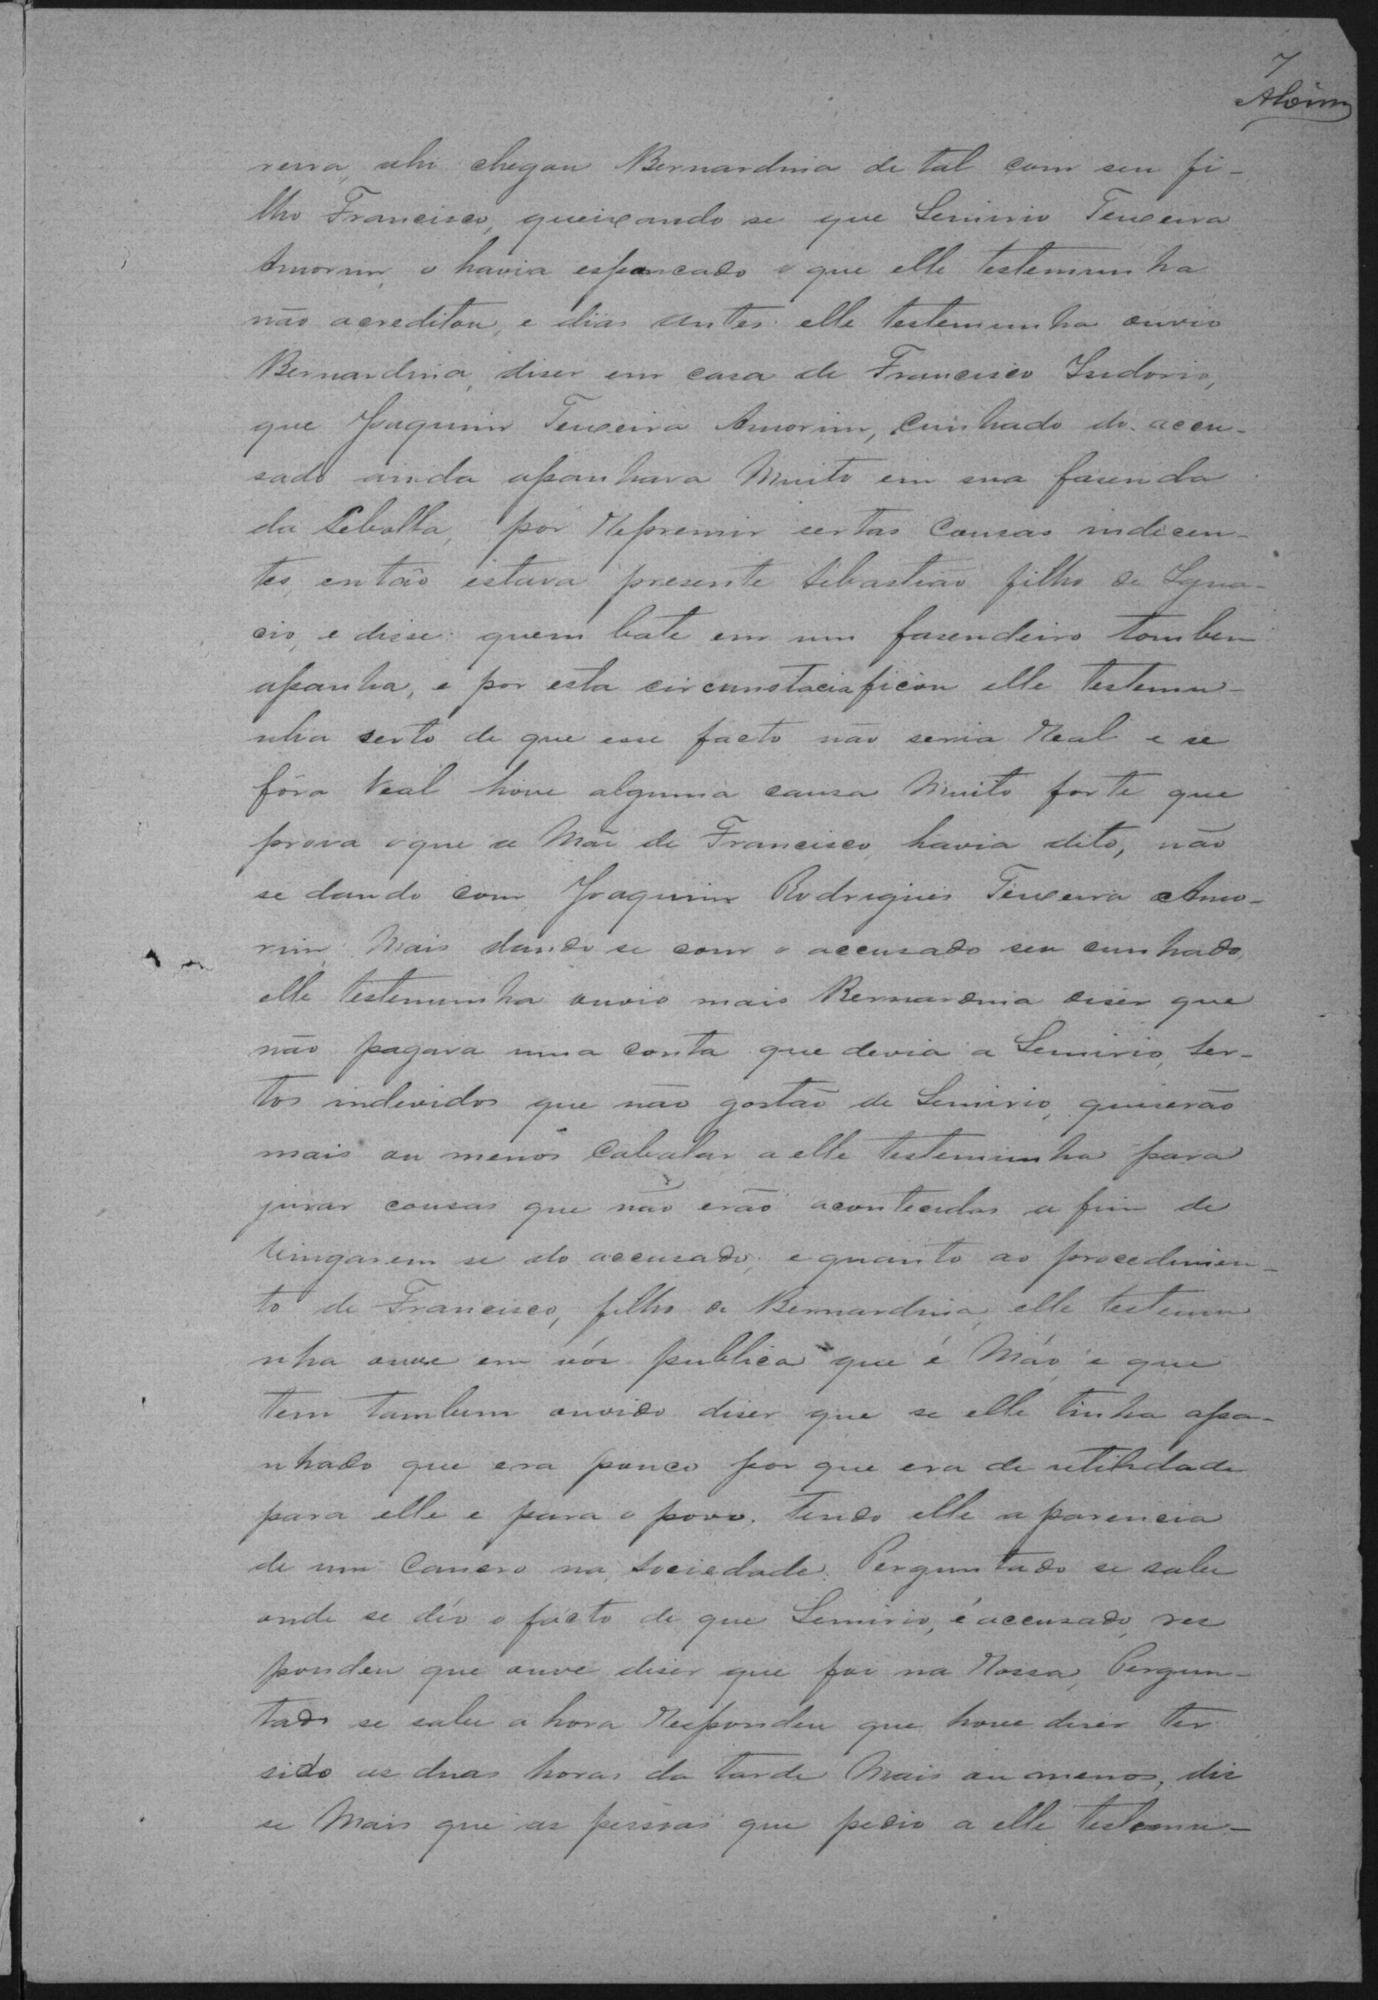 7
reira, ahi chegou Bernardina de tal com seu fi-
lho Francisco, queixando se que Semirio Teixeira
Amorim, o havia espancado o que elle testemunha
não acreditou, e dias antes elle testemunha ouvio
Bernardina, diser em casa de Francisco Isidorio,
que Joaquim Teixeira Amorim, cunhado do accu-
sado ainda apanhava Muito em sua fasenda
da Sebolla, por Repremir sertas Cousas indicen-
tes, então estava presente Sebastião filho de Igna-
cio, e disse: quem bate em um fasendeiro tambem
apanha, e por esta circunstacia ficou elle testemu-
nha serto de que esse facto não seria Real e se
fôra Real houve alguma causa Muito forte que
prova o que a Mãe de Francisco, havia dito, não
se dando com Joaquim Rodrigues Teixeira Amo-
rim, Mais dando se com o accusado seu cunhado,
elle testemunha ouvio mais Bernardina diser que
não pagava uma conta que devia a Semirio, Ser-
tos indevidos que não gostão de Semirio, quiserão
mais ou menos Cabalar a elle testemunha para
jurar cousas que não erão acontecidas a fim de
vingarem se do accusado, e quanto ao procedimen-
to de Francisco, filho de Bernardina, elle testemu
nha ouve em vós publica que é Máo e que
tem tambem ouvido diser que se elle tinha apa-
nhado que era pouco por que era de utilidade
para elle e para o povo. Tendo elle aparencia
de um Cancro na Sociedade. Perguntado se sabe
onde se déo o facto de que Semirio, é accusado, res
pondeu que ouve diser que foi na Rossa, Pergun-
tado se sabe a hora Respondeu que houve diser ter
sido as duas horas da tarde Mais ou menos, dis
se Mais que as pessoas que pedio a elle testemu-